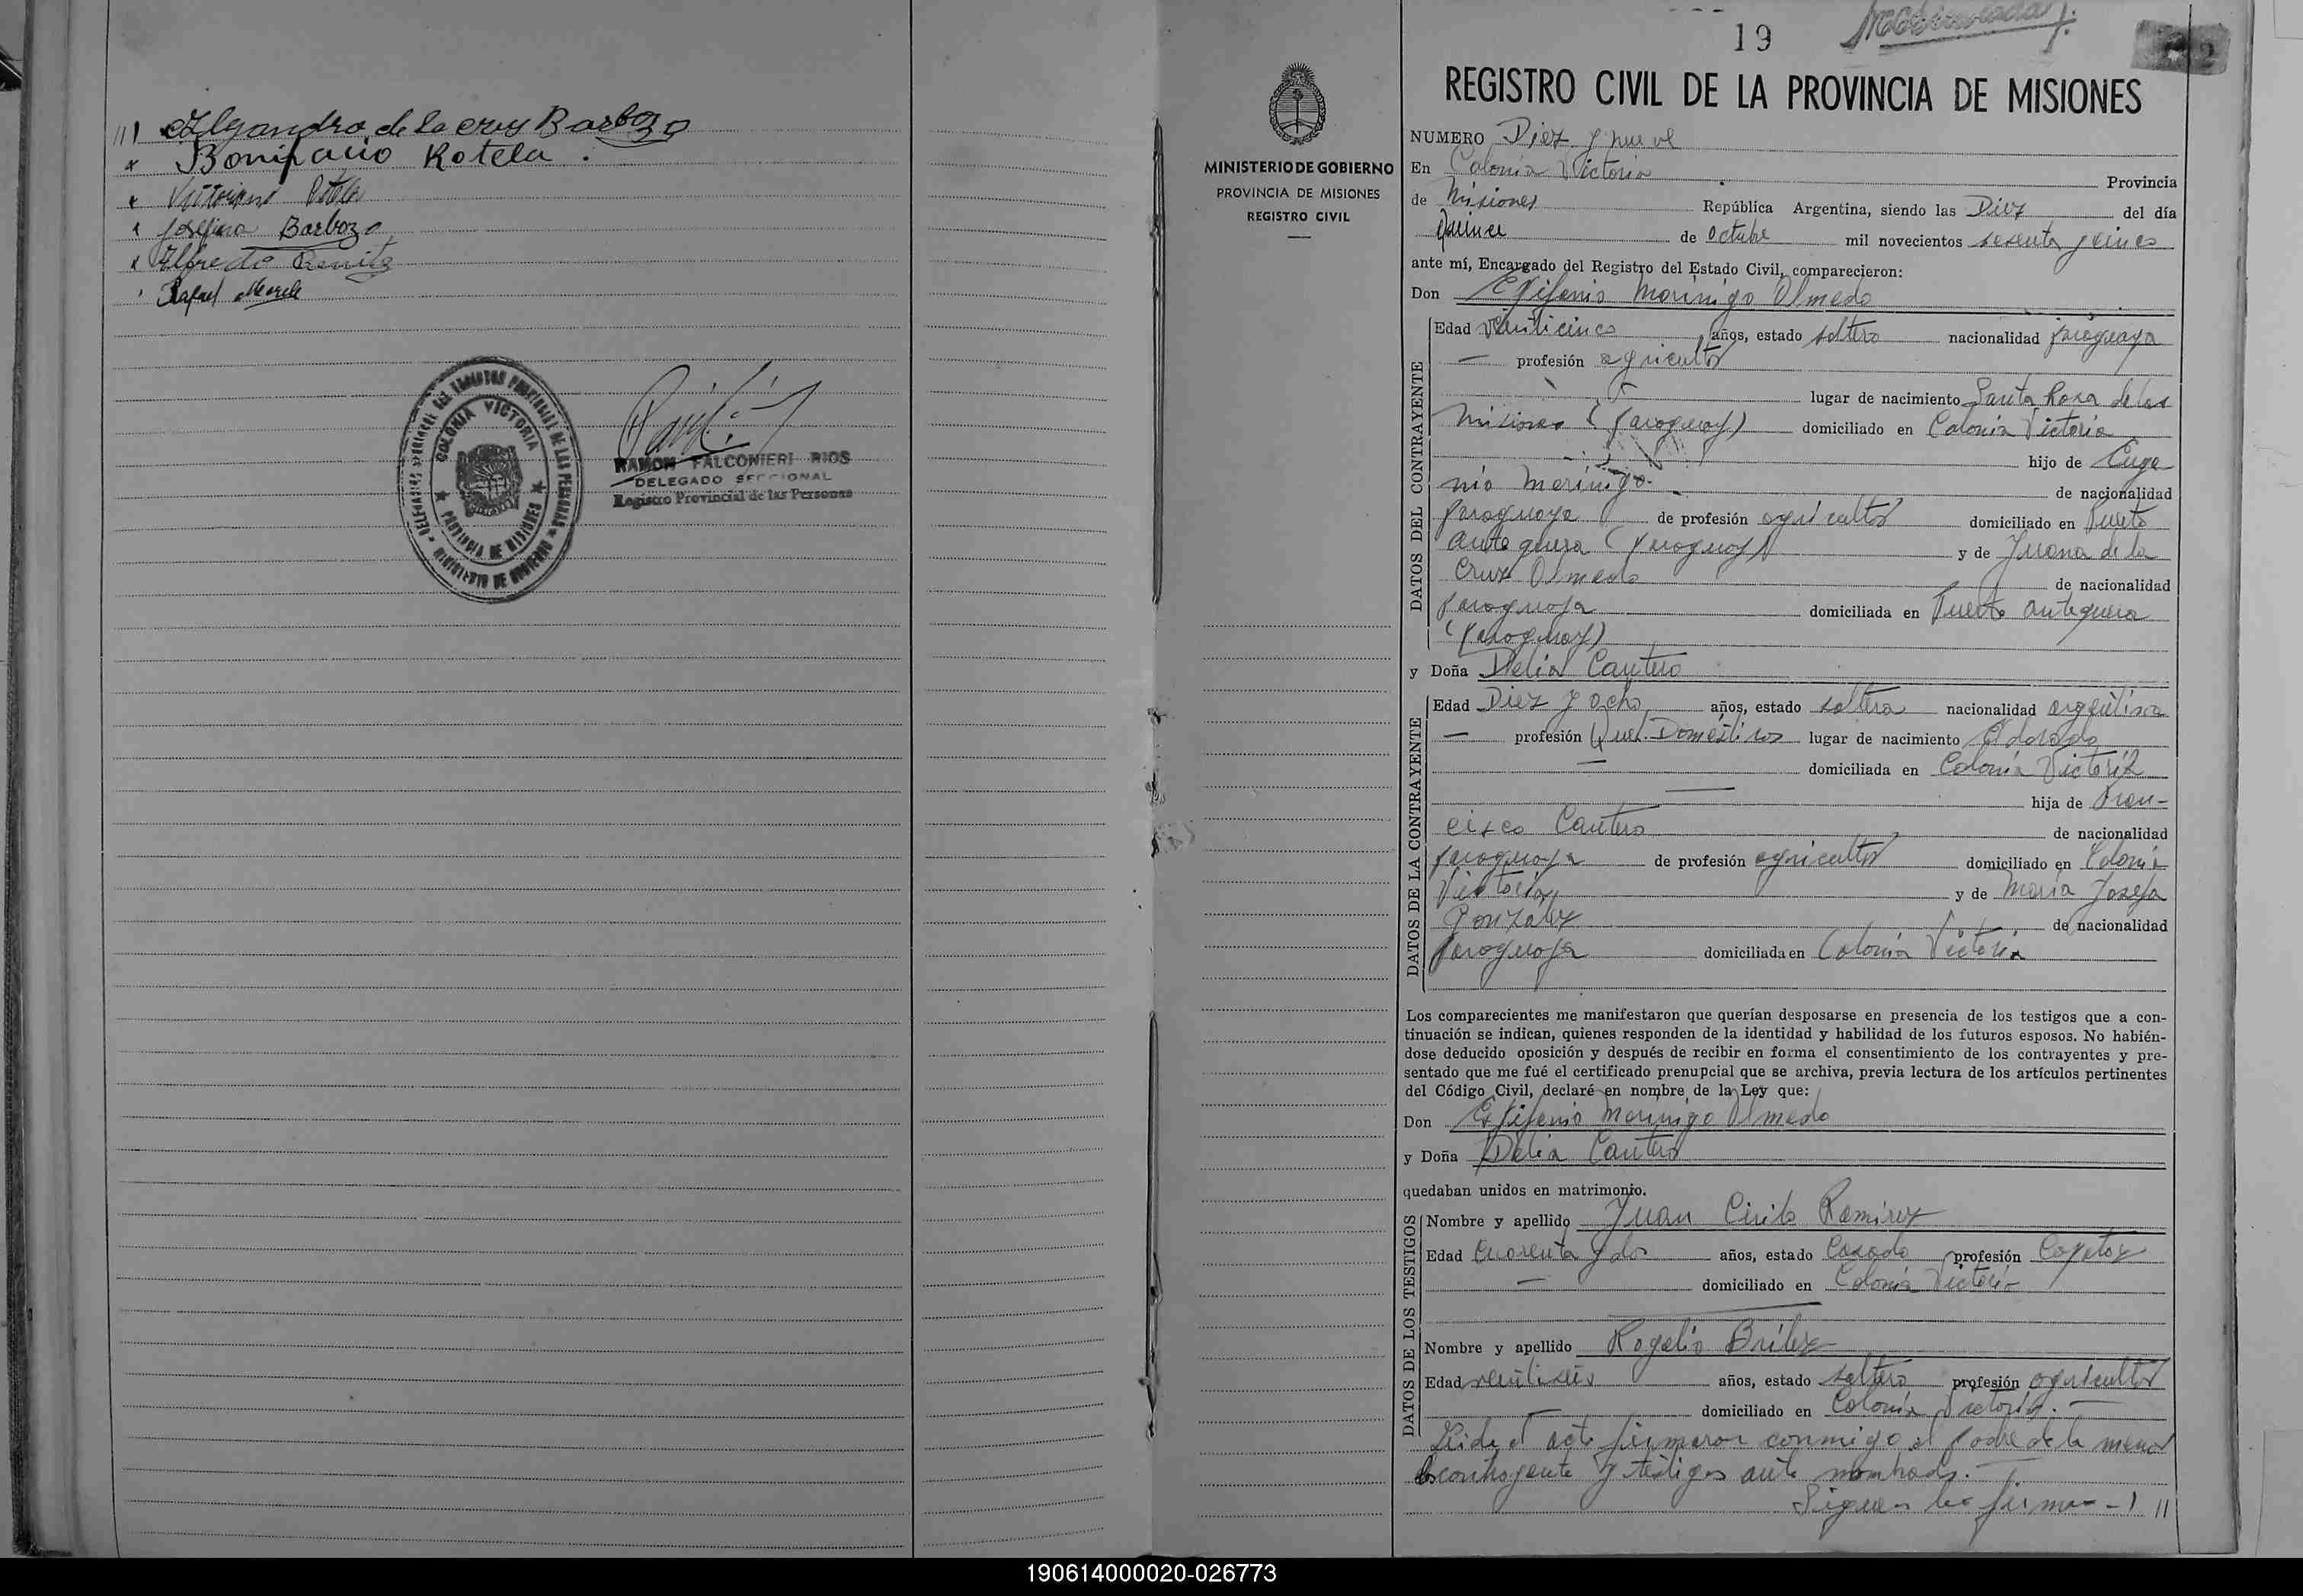 Bonifacio Rotela .
Josefina Barbozo
Alfredo Benitez
Rafael
COLONIA VICTORIA
PROVINCIA DE MISIONES
MINISTERIO DE GOBIERNO
RAMON FALCONIERI RIOS
DELEGADO SECCIONAL
Registro Provincial de las Personas
MINISTERIO DE GOBIERNO
PROVINCIA DE MISIONES
REGISTRO CIVIL
19
REGISTRO CIVIL DE LA PROVINCIA DE MISIONES
NUMERO Diez y nueve
En Colonia Victoria Provincia
de Misiones República Argentina, siendo las Diez del día
quince de octubre mil novecientos sesenta y cinco
ante mí, Encargado del Registro del Estado Civil, comparecieron:
Don Epifanio Morinigo Olmedo
DATOS DEL CONTRAYENTE
Edad veinticinco años, estado soltero nacionalidad paraguaya
— profesión agricultor
lugar de nacimiento Santa Rosa de las
Misiones (Paraguay) domiciliado en Colonia Victoria
hijo de Euge
nio Morinigo. de nacionalidad
paraguaya de profesión agricultor domiciliado en Puerto
Antequera (Paraguay) y de Juana de la
Cruz Olmedo de nacionalidad
paraguaya domiciliada en Puerto Antequera
(Paraguay)
y Doña Delia Cantero
DATOS DE LA CONTRAYENTE
Edad Diez y ocho años, estado soltera nacionalidad argentina
— profesión Queh. Domésticos lugar de nacimiento Eldorado
— domiciliada en Colonia Victoria
— hija de Fran-
cisco Cantero de nacionalidad
paraguaya de profesión agricultor domiciliado en Colonia
Victoria y de María Josefa
González de nacionalidad
paraguaya domiciliada en Colonia Victoria
Los comparecientes me manifestaron que querían desposarse en presencia de los testigos que a con-
tinuación se indican, quienes responden de la identidad y habilidad de los futuros esposos. No habién-
dose deducido oposición y después de recibir en forma el consentimiento de los contrayentes y pre-
sentado que me fué el certificado prenupcial que se archiva, previa lectura de los artículos pertinentes
del Código Civil, declaré en nombre de la Ley que:
Don Epifanio Morinigo Olmedo
y Doña Delia Cantero
quedaban unidos en matrimonio.
DATOS DE LOS TESTIGOS
Nombre y apellido Juan Cirilo Ramirez
Edad Cuarenta y dos años, estado Casado profesión Capataz
— domiciliado en Colonia Victoria
Nombre y apellido Rogelio Brítez
Edad veintiseis años, estado soltero profesión agricultor
— domiciliado en Colonia Victoria. —
Leída el acta firmaron conmigo el padre de la menor
los contrayente y testigos ante nombrads. —
Siguen las firmas - ) //
190614000020-026773